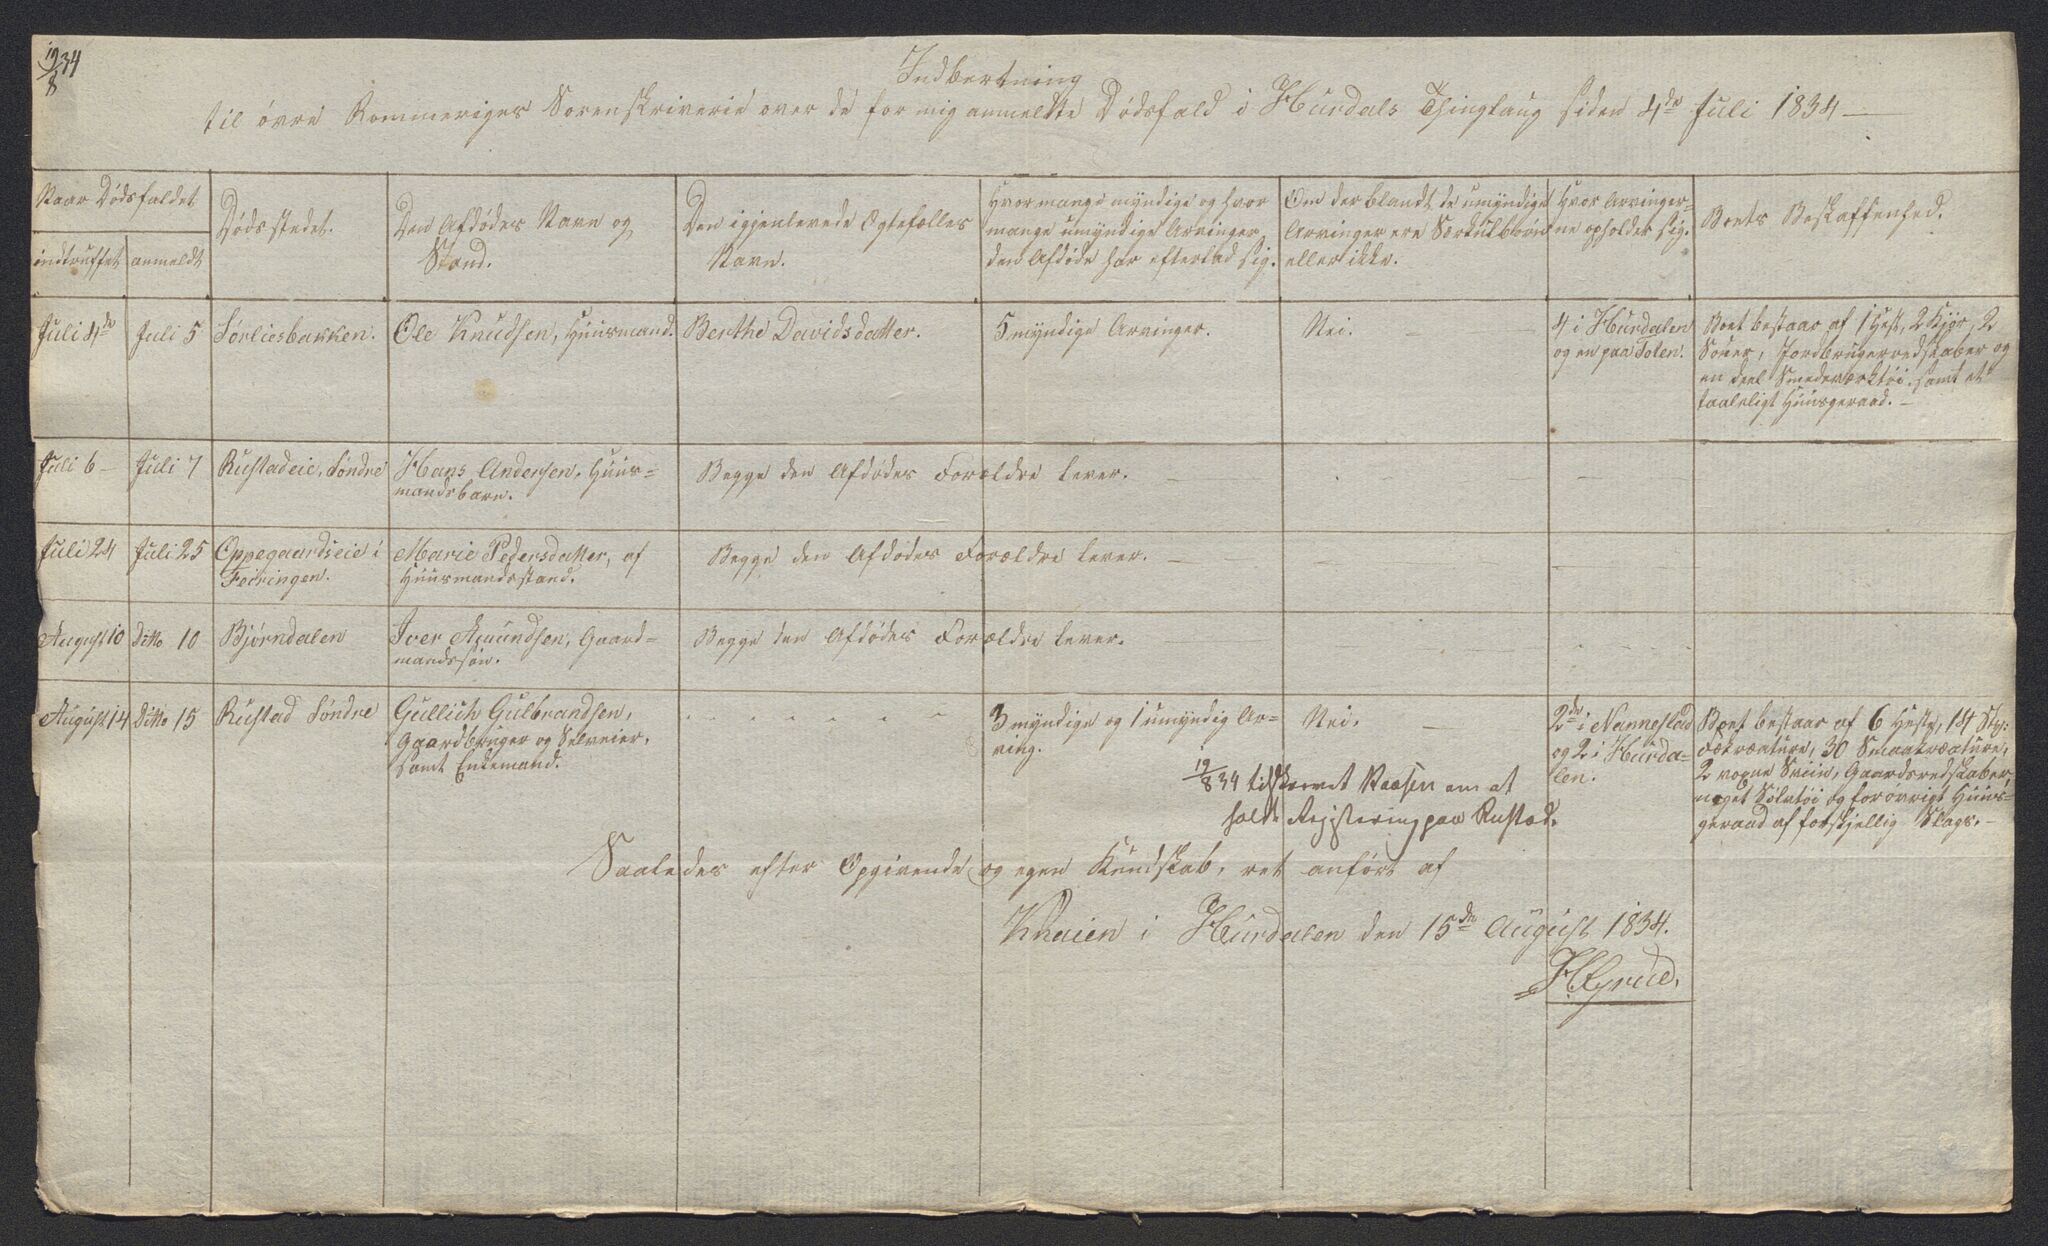 19/8 34
Indberetning
til øvre Rommeriges Sorenskriverie over de for mig anmeldte Dødsfald i Hurdals Thinglaug siden 4de Juli 1834 —
Naar Dødsfaldet
indtruffet
anmeldt
Dødsstedet.
Den Afdødes Navn og
Stand.
Den igjenlevede Ægtefælles
Navn.
Hvor mange myndige og hvor
mange umyndige Arvinger
den Afdøde har efterlad sig.
Om der blandt de umyndige
Arvinger ere Særkulbørn
eller ikke.
Hvor Arvinger=
ne opholder sig.
Boets Beskaffenhed.
Juli 4de
Juli 5
Sørliesbakken.
Ole Knudsen, Huusmand.
Berthe Davidsdatter.
5 myndige Arvinger.
Nei. —
4 i Hurdalen
og en paa Toten.
Boet bestaar af 1 Hest, 2 Kjør, 2
Souer, Jordbrugerredskaber og
en deel Smedeværktøi, samt et
taaleligt Huusgeraad. —
Juli 6 —
Juli 7
Rustadeie, Søndre
Hans Andersen, Huus=
mandsbarn.
Begge den Afdødes Forældre lever. —
Juli 24
Juli 25
Oppegaardseie i
Feiringen.
Marie Pedersdatter, af
Huusmandsstand.
Begge den Afdødes Forældre lever. —
August 10
Ditto 10
Bjørndalen
Iver Amundsen, Gaard=
mandssøn.
Begge den Afdødes Forældre lever. —
August 14
Ditto 15
Rustad Søndre
Gullich Gulbrandsen,
Gaardbruger og Selveier,
samt Enkemand.
3 myndige og 1 umyndig Ar=
ving.
Nei. —
2de i Nannestad
og 2 i Hurda=
len.
Boet bestaar af 6 Heste, 14 Sty:
Fækreature, 30 Smaakreature,
2 voxne Sviin, Gaardsredskaber,
noget Sølvtøi og forøvrigt Huus=
geraad af forskjellig Slags. —
19/8 34 tilskrevet Naesen om at
holde Registering paa Rustad.
Saaledes efter Opgivende og egen Kundskab, ret anført af
Knaien i Hurdalen den 15de August 1834.